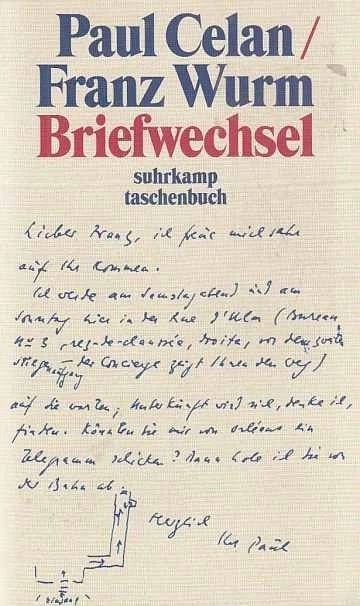 Paul Celan/
Franz Wurm
Briefwechsel
suhrkamp
taschenbuch
Lieber Franz, ich freue mich sehr
auf Ihr Kommen.
Ich werde am Samstagabend und am
Sonntag hier in der Rue d'Ulm (Bureau
No 3, rez-de-chaussée, droite, vor dem zweiten
Stiegenaufgang – der Concierge zeigt Ihnen den Weg)
auf Sie warten; Unterkunft wird sich, denke ich,
finden. Könnten Sie mir von Orléans ein
Telegramm schicken? Dann hole ich Sie von
der Bahn ab.
Herzlich
Ihr Paul
(Eingang)